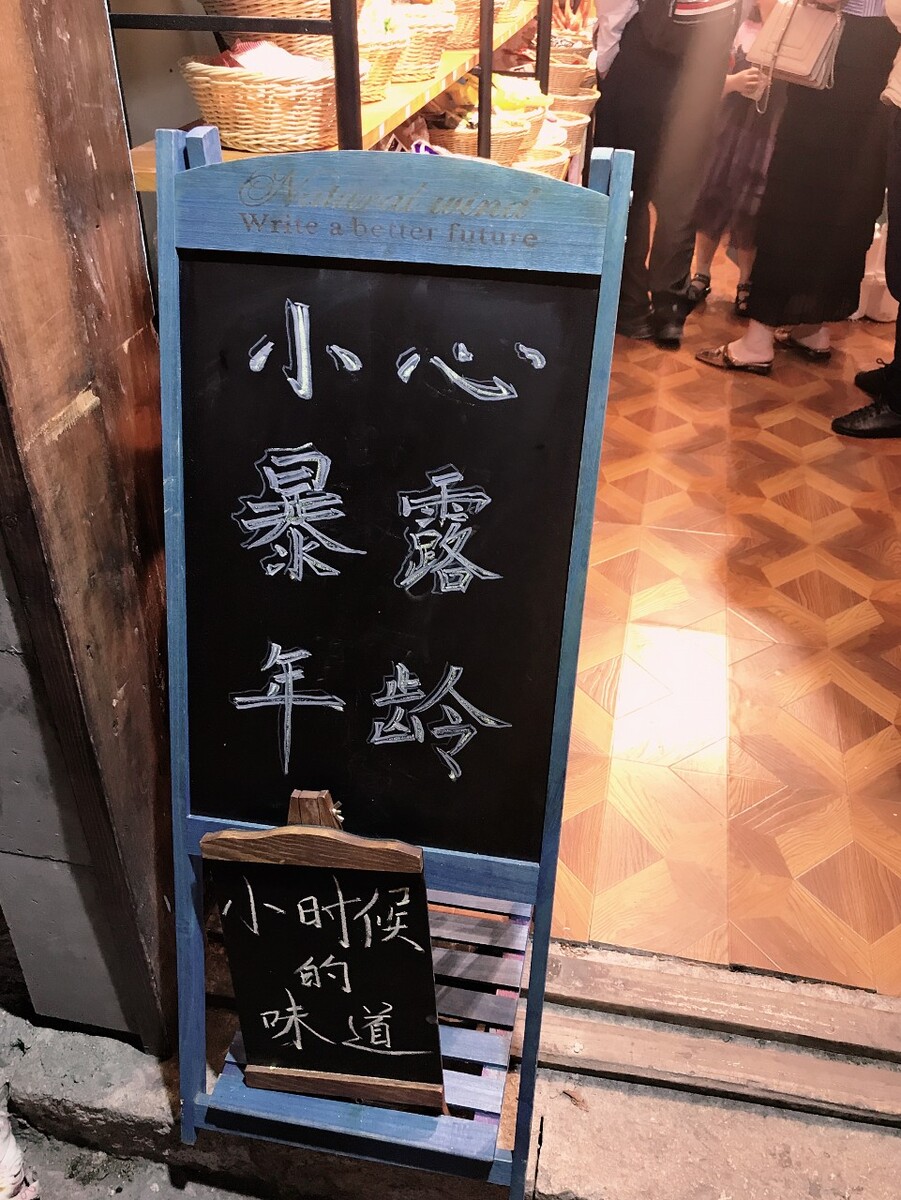 Natural wind
Write a better future
小心
暴露
年龄
小时候
的
味道